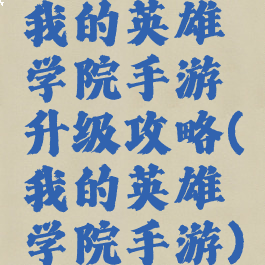 我的英雄
学院手游
升级攻略(
我的英雄
学院手游)